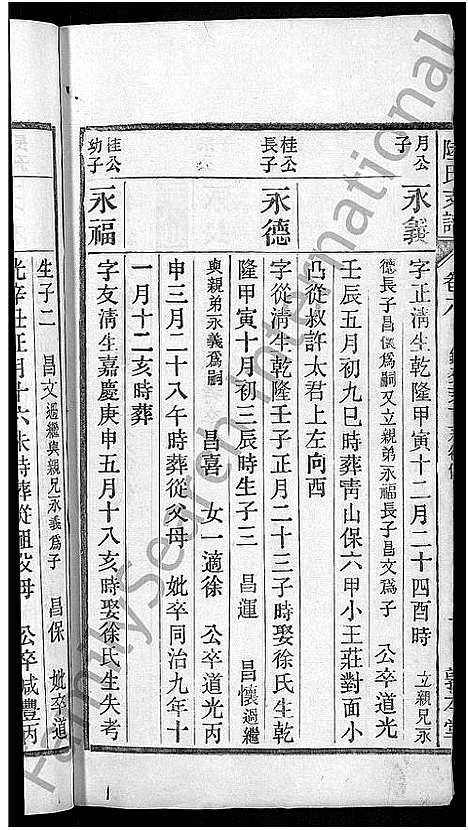 陸氏支譜
卷六
敦本堂
月公
子
永義
字正淸生乾隆甲寅十二月二十四酉時 立親兄永
德長子昌懷爲嗣又立親弟永福長子昌文爲子 公卒道光
壬辰五月初九巳時葬靑山保六甲小王莊對面小
凸從叔許太君上左向西
桂公
長子
永德
字從淸生乾隆壬子正月二十三子時娶徐氏生乾
隆甲寅十月初三辰時生子三 昌運 昌懷過繼
與親弟永義爲嗣 昌喜 女一適徐 公卒道光丙
申三月二十八午時葬從父母 妣卒同治九年十
一月十二亥時葬
桂公
幼子
永福
字友淸生嘉慶庚申五月十八亥時娶徐氏生失考
生子二 昌文過繼與親兄永義爲子 昌保 妣卒道
光辛丑正月十六未時葬從祖父母 公卒咸豐丙
FamilySearch International